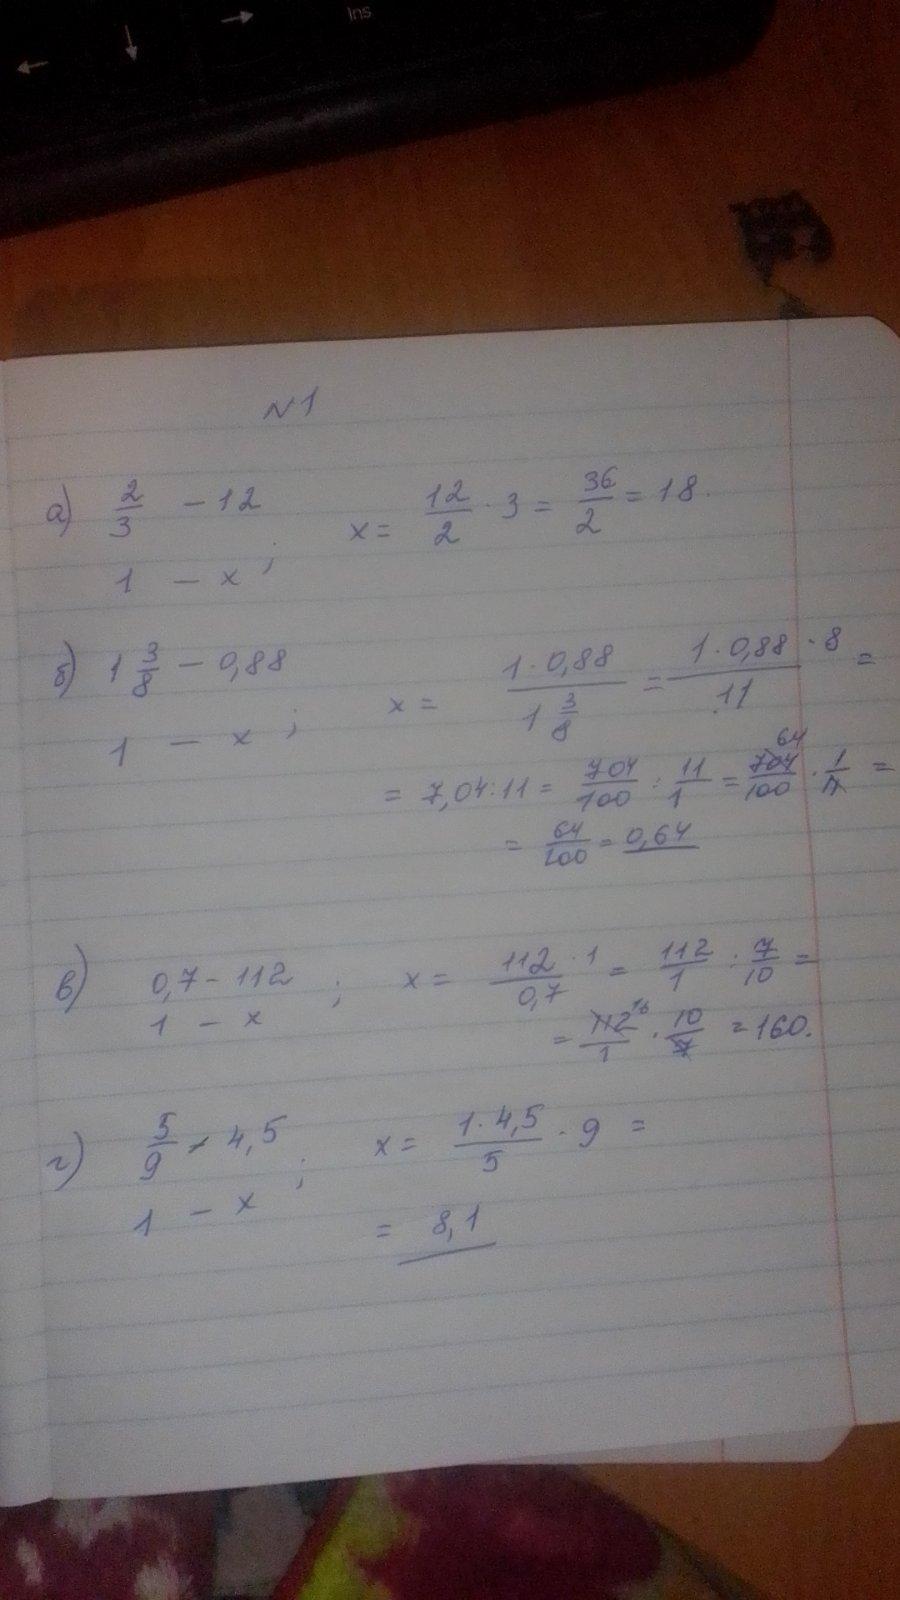 Ins
№1
а) 2/3 - 12
х = 12/2 · 3 = 36/2 = 18.
1 - х ;
б) 1 3/8 - 0,88
х = 1·0,88/1 3/8 = 1·0,88·8/11 =
1 - х ;
= 7,04:11 = 704/100 : 11/1 = 704/100 64 · 1/11 =
= 64/100 = 0,64
в) 0,7 - 112
1 - х ;
х = 112·1/0,7 = 112/1 : 7/10 =
= 112/1 16 · 10/7 = 160.
г) 5/9 - 4,5
1 - х ;
х = 1·4,5/5 · 9 =
= 8,1